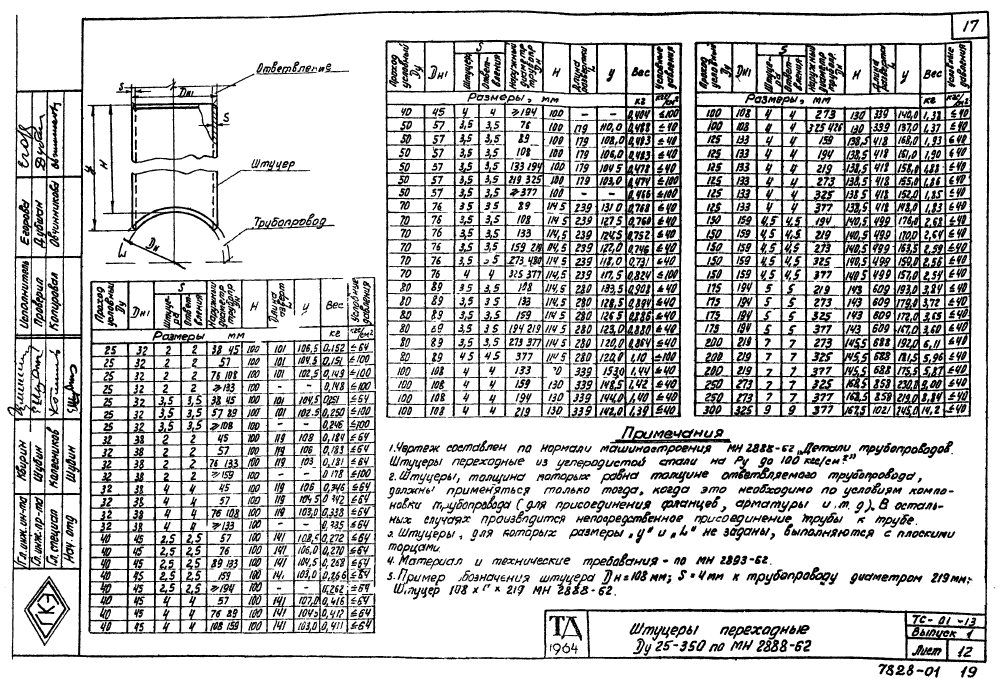 17
Ответвление
Dн1
S
S
Штуцер
H
y
Трубопровод
Dн
L
Проход условный Dу | Dн1 | S Штуцера | S Ответвления | Наружный диаметр трубопр. Dн | H | Длина развертки L | y | Вес | Условные давления
Размеры, мм | кг | кгс/см²
25 32 2 2 38 45 100 101 106,5 0,152 ≤64
25 32 2 2 57 100 101 104,5 0,151 ≤100
25 32 2 2 76 108 100 101 102,5 0,149 ≤100
25 32 2 2 ⩾133 100 – – 0,148 ≤100
25 32 3,5 3,5 38 45 100 101 104,5 0,251 ≤64
25 32 3,5 3,5 57 89 100 101 102,5 0,250 ≤100
25 32 3,5 3,5 ⩾108 100 – – 0,246 ≤100
32 38 2 2 45 100 119 108 0,184 ≤64
32 38 2 2 57 100 119 106 0,183 ≤64
32 38 2 2 76 133 100 119 103 0,181 ≤64
32 38 2 2 ⩾159 100 – – 0,178 ≤100
32 38 4 4 45 100 119 106 0,346 ≤64
32 38 4 4 57 100 119 104,5 0,342 ≤64
32 38 4 4 76 108 100 119 103,0 0,338 ≤64
32 38 4 4 ⩾133 100 – – 0,335 ≤64
40 45 2,5 2,5 57 100 141 108,5 0,272 ≤64
40 45 2,5 2,5 76 100 141 106,0 0,270 ≤64
40 45 2,5 2,5 89 133 100 141 104,5 0,268 ≤64
40 45 2,5 2,5 159 100 141 103,0 0,266 ≤64
40 45 2,5 2,5 ⩾194 100 – – 0,262 ≤64
40 45 4 4 57 100 141 107,0 0,416 ≤64
40 45 4 4 76 89 100 141 104,5 0,412 ≤64
40 45 4 4 108 159 100 141 103,0 0,411 ≤64
Проход условный Dу | Dн1 | S Штуцера | S Ответвления | Наружный диаметр трубопр. Dн | H | Длина развертки L | y | Вес | Условные давления
Размеры, мм | кг | кгс/см²
40 45 4 4 ⩾194 100 – – 0,404 ≤100
50 57 3,5 3,5 76 100 179 110,0 0,488 ≤40
50 57 3,5 3,5 89 100 179 108,0 0,483 ≤40
50 57 3,5 3,5 108 100 179 106,0 0,483 ≤40
50 57 3,5 3,5 133 194 100 179 104,5 0,478 ≤40
50 57 3,5 3,5 219 325 100 179 103,0 0,474 ≤100
50 57 3,5 3,5 ⩾377 100 – – 0,466 ≤100
70 76 3,5 3,5 89 114,5 239 131,0 0,768 ≤40
70 76 3,5 3,5 108 114,5 239 127,5 0,760 ≤40
70 76 3,5 3,5 133 114,5 239 124,5 0,752 ≤40
70 76 3,5 3,5 159 219 114,5 239 122,0 0,746 ≤40
70 76 3,5 3,5 273, 480 114,5 239 118,0 0,731 ≤40
70 76 4 4 325 377 114,5 239 117,5 0,824 ≤100
80 89 3,5 3,5 108 114,5 280 133,5 0,908 ≤40
80 89 3,5 3,5 133 114,5 280 128,5 0,894 ≤40
80 89 3,5 3,5 159 114,5 280 126,5 0,886 ≤40
80 89 3,5 3,5 194 219 114,5 280 123,0 0,880 ≤40
80 89 3,5 3,5 273 377 114,5 280 120,0 0,864 ≤40
80 89 4,5 4,5 377 114,5 280 120,0 1,10 ≤100
100 108 4 4 133 130 339 153,0 1,44 ≤40
100 108 4 4 159 130 339 148,5 1,42 ≤40
100 108 4 4 194 130 339 144,0 1,40 ≤40
100 108 4 4 219 130 339 142,0 1,39 ≤40
Проход условный Dу | Dн1 | S Штуцера | S Ответвления | Наружный диаметр трубопр. Dн | H | Длина развертки L | y | Вес | Условные давления
Размеры, мм | кг | кгс/см²
100 108 4 4 273 130 339 140,0 1,38 ≤40
100 108 4 4 325 426 130 339 137,0 1,37 ≤40
125 133 4 4 159 138,5 418 168,0 1,93 ≤40
125 133 4 4 194 138,5 418 161,0 1,90 ≤40
125 133 4 4 219 138,5 418 158,0 1,88 ≤40
125 133 4 4 273 138,5 418 155,0 1,86 ≤40
125 133 4 4 325 138,5 418 152,0 1,85 ≤40
125 133 4 4 377 138,5 418 148,0 1,83 ≤40
150 159 4,5 4,5 194 140,5 499 176,0 2,68 ≤40
150 159 4,5 4,5 219 140,5 499 170,0 2,64 ≤40
150 159 4,5 4,5 273 140,5 499 163,5 2,59 ≤40
150 159 4,5 4,5 325 140,5 499 159,0 2,56 ≤40
150 159 4,5 4,5 377 140,5 499 157,0 2,54 ≤40
175 194 5 5 219 143 609 193,0 3,84 ≤40
175 194 5 5 273 143 609 179,0 3,72 ≤40
175 194 5 5 325 143 609 172,0 3,65 ≤40
175 194 5 5 377 143 609 167,0 3,60 ≤40
200 219 7 7 273 145,5 688 192,0 6,11 ≤40
200 219 7 7 325 145,5 688 181,5 5,96 ≤40
200 219 7 7 377 145,5 688 175,5 5,87 ≤40
250 273 7 7 325 168,5 858 230,8 9,00 ≤40
250 273 7 7 377 168,5 858 219,0 8,84 ≤40
300 325 9 9 377 167,5 1021 245,0 14,2 ≤40
Примечания
1. Чертеж составлен по нормали машиностроения МН 2888-62 „Детали трубопроводов.
Штуцеры переходные из углеродистой стали на Ру до 100 кгс/см²"
2. Штуцеры, толщина которых равна толщине ответвляемого трубопровода,
должны применяться только тогда, когда это необходимо по условиям компо-
новки трубопровода (для присоединения фланцев, арматуры и т.д). В осталь-
ных случаях производится непосредственное присоединение трубы к трубе.
3. Штуцеры, для которых размеры „y" и „L" не заданы, выполняются с плоскими
торцами.
4. Материал и технические требования - по МН 2893-62.
5. Пример обозначения штуцера Dн = 108 мм; S = 4 мм к трубопроводу диаметром 219 мм:
Штуцер 108 х 4 х 219 МН 2888-62.
ТД
1964
Штуцеры переходные
Dу 25-350 по МН 2888-62
ТС-01-13
Выпуск 1
Лист 12
7828-01 19
Гл. инж. ин-та Кбирин
Гл. инж. пр-та Шубин
Гл. специал Колесников
Нач. отд Шубин
Исполнитель Егорова
Проверил Дубишан
Копировал Овчинникова
ГКЭ